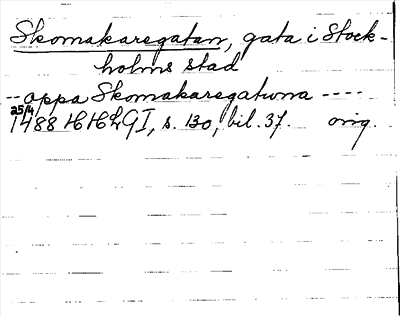 Skomakaregatan, gata i Stock-
holms stad
-- oppa Skomakaregatuna ----
25/4
1488 HHLGI, s. 130, bil. 37. orig.